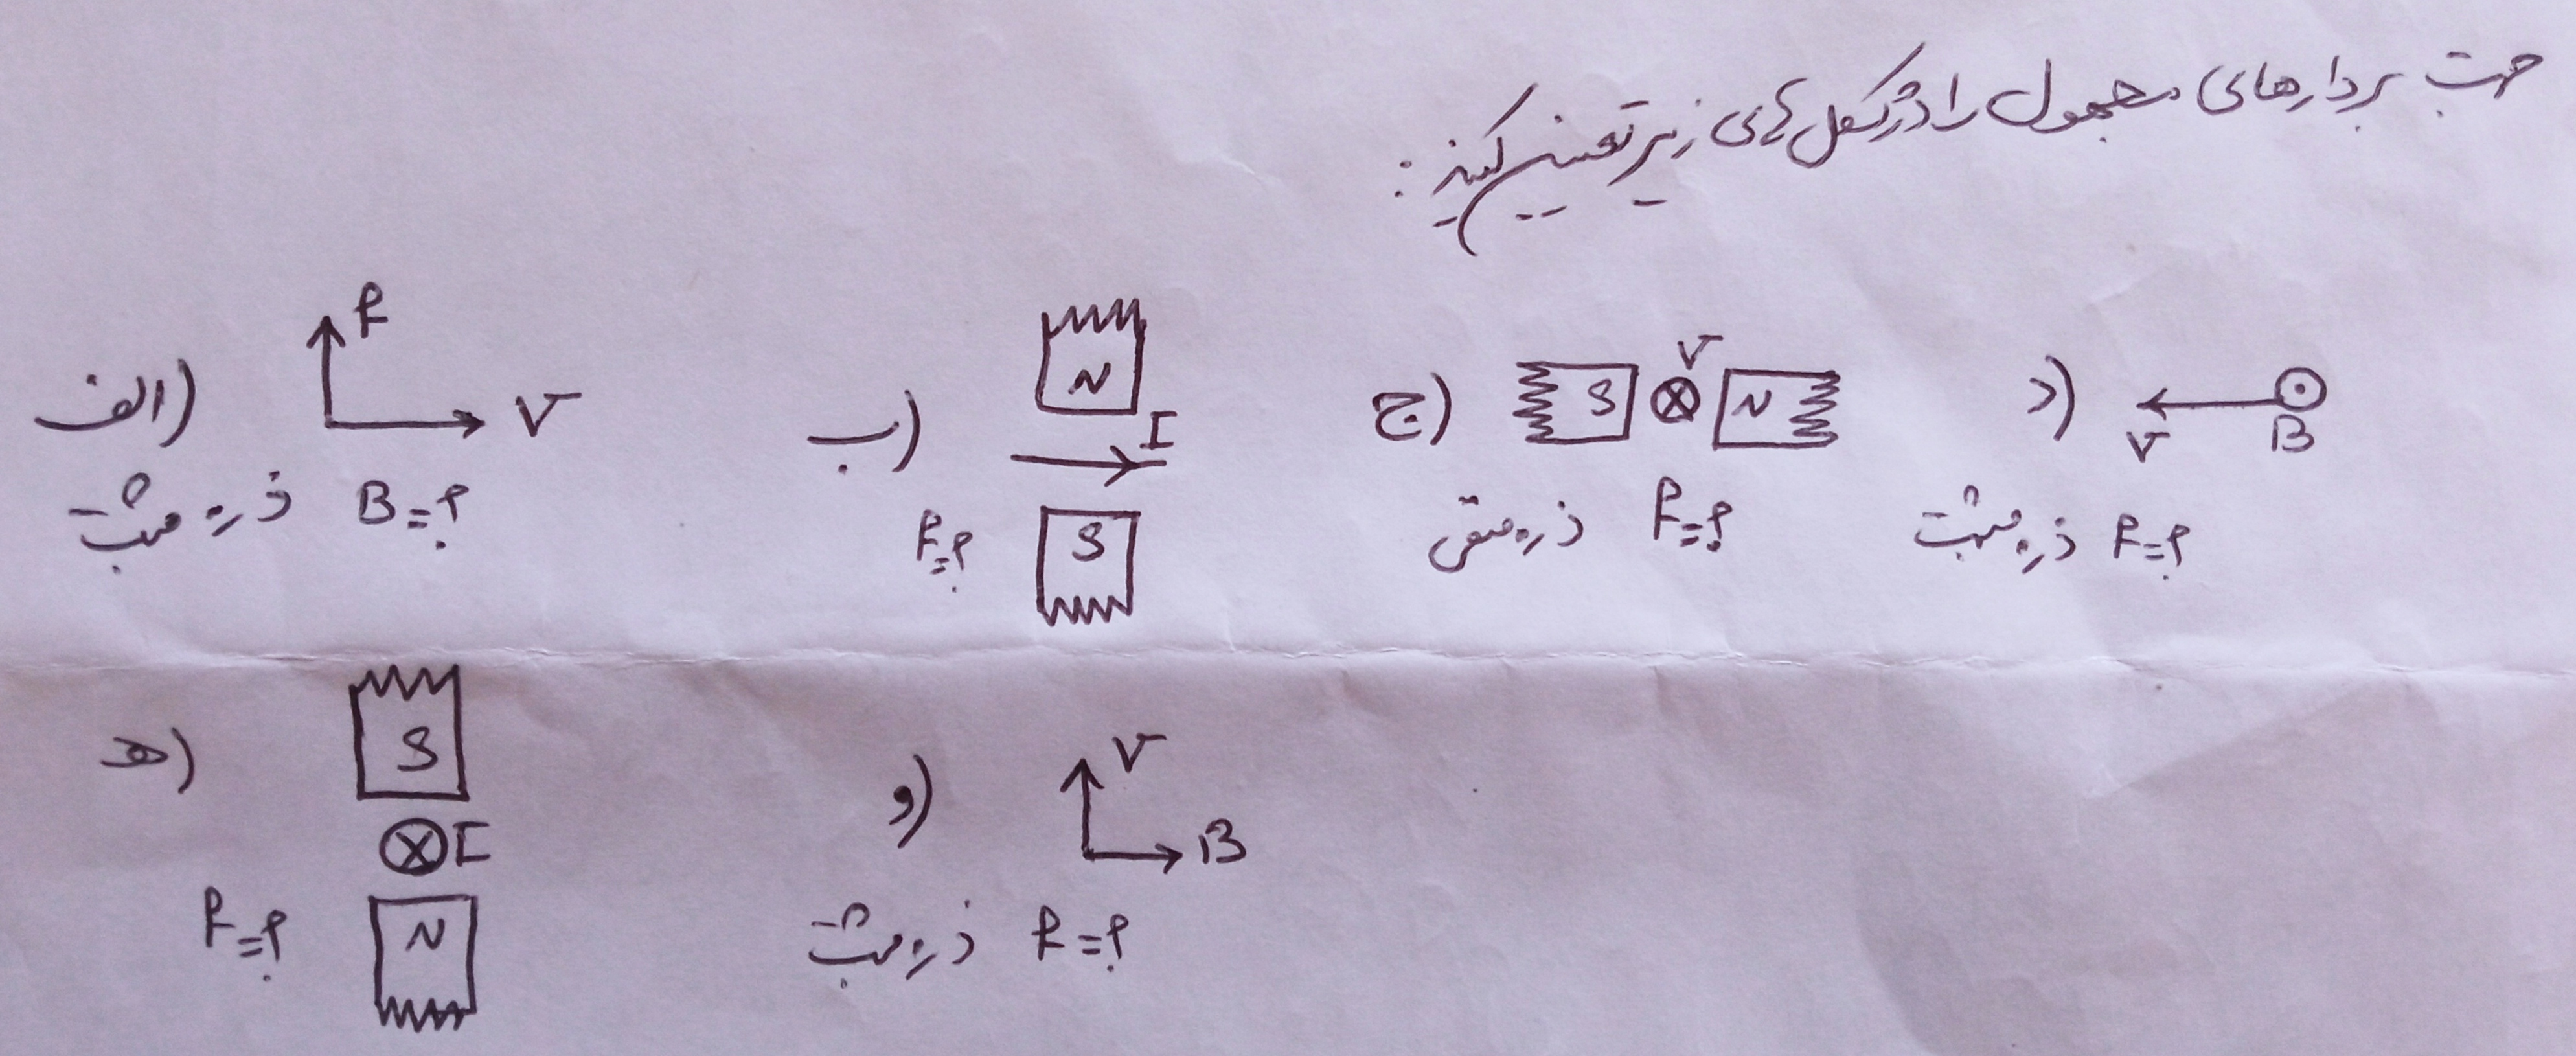 جهت بردارهای مجهول را در شکل های زیر تعیین کنید:
الف) F V
B=؟ ذره مثبت
ب) N I S
F=؟
ج) S V N
F=؟ ذره منفی
د) V B
F=؟ ذره مثبت
هـ) S I N
F=؟
و) V B
F=؟ ذره مثبت